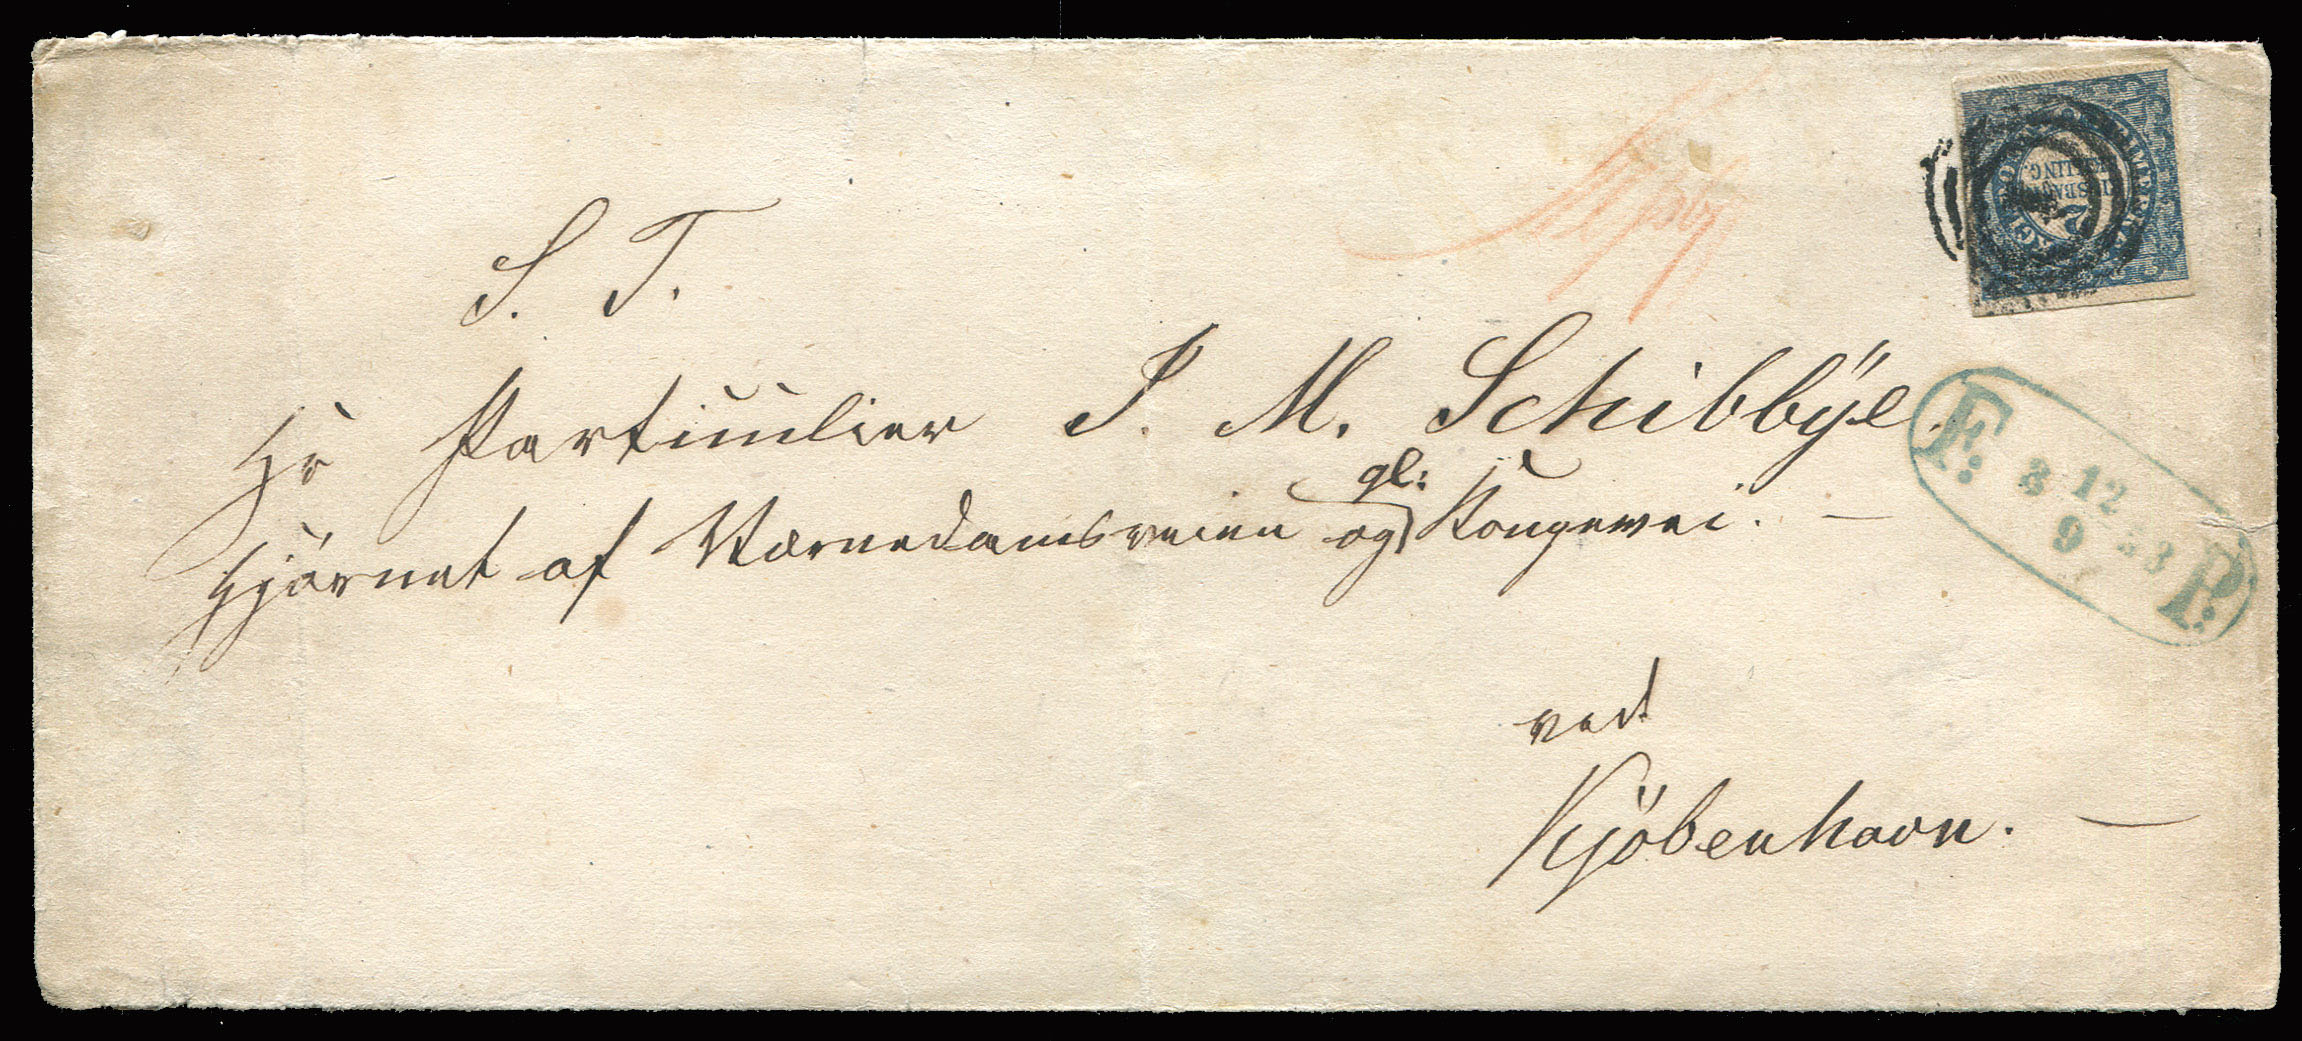 S. T.
Hr Particulier J. M. Schibbÿe.
gl:
Hjörnet af Værnedamsveien og Kongevei. —
ved
Kjöbenhavn. —
F: 8 12 P:
9 53